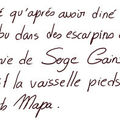 qu'après avoir diné
bu dans des escarpins
ve de Serge Gains
t la vaisselle pieds
Mapa.